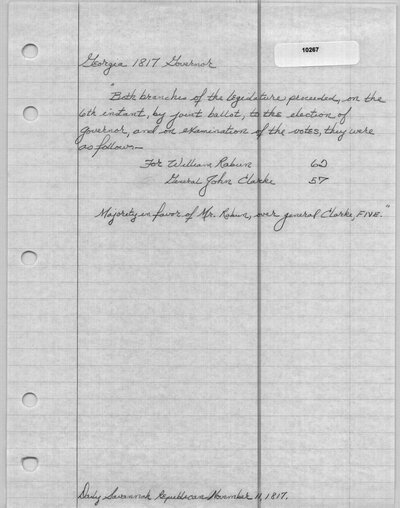 10267
Georgia 1817 Governor
"Both branches of the legislature proceeded, on the
6th instant, by joint ballot, to the election of
governor, and on examination of the votes, they were
as follow:—
For William Rabun 62
General John Clarke 57
Majority in favor of Mr. Rabun, over general Clarke, FIVE."
Daily Savannah Republican November 11, 1817.